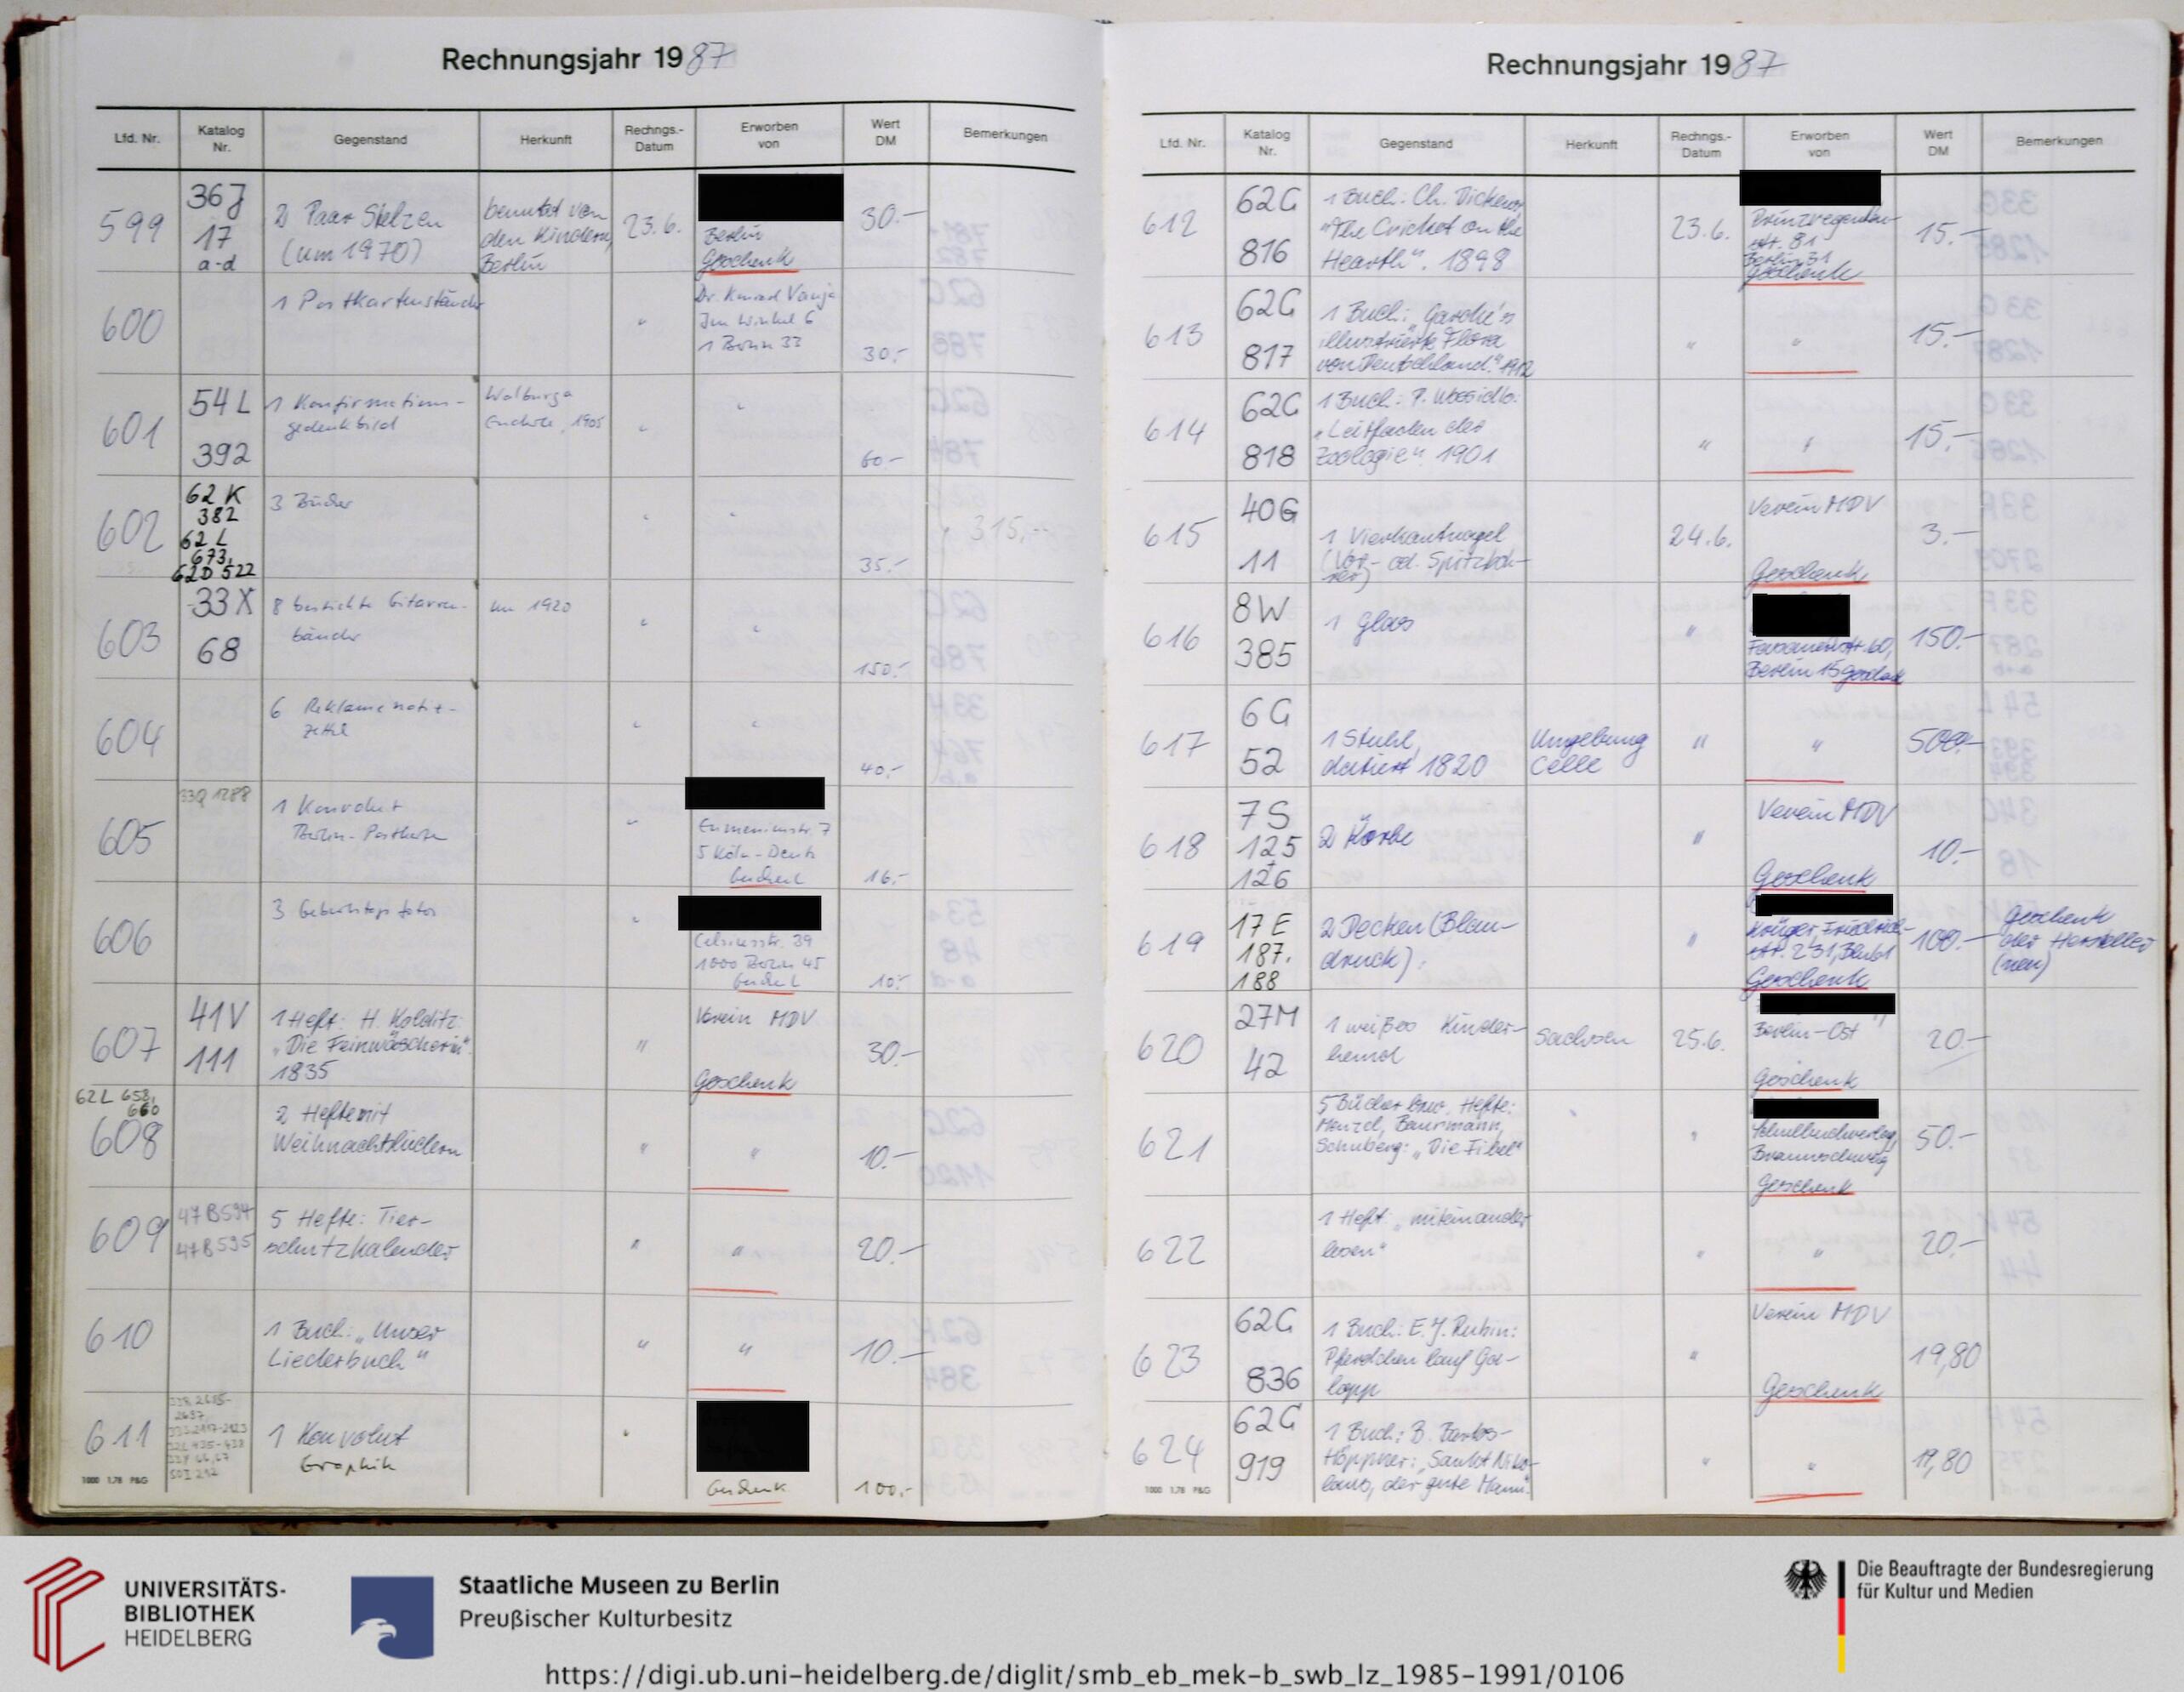 Rechnungsjahr 1987
Lfd. Nr.
Katalog
Nr.
Gegenstand
Herkunft
Rechngs.-
Datum
Erworben
von
Wert
DM
Bemerkungen
599
36J
17
a-d
2 Paar Stelzen
(um 1970)
benutzt von
den Kindern,
Berlin
23.6.
Berlin
Geschenk
30.-
600
1 Postkartenständer
"
Dr. Konrad Vanja
Im Winkel 6
1 Berlin 33
30.-
601
54 L
392
1 Konfirmations-
gedenkbild
Walburga
1905
"
"
60.-
602
62 K
382
62 L
673,
62D 522
3 Bücher
"
"
35.-
315,--
603
33 X
68
8 bestickte Gitarren-
bänder
um 1920
"
"
150.-
604
6 Reklamenotiz-
zettel
"
"
40.-
605
33Q 1288
1 Konvolut
Berlin-Postkarten
"
7
5 Köln-Deutz
Geschenk
16.-
606
3 Geburtstagsfotos
"
Celsiusstr. 39
1000 Berlin 45
Geschenk
10.-
607
41V
111
1 Heft: H. Kolditz:
"Die Feinwäscherin"
1835
"
Verein MDV
Geschenk
30.-
62L 658,
660
608
2 Hefte mit
Weihnachtsliedern
"
"
10.-
609
47B594
47B595
5 Hefte: Tier-
schutzkalender
"
"
20.-
610
1 Buch: "Unser
Liederbuch"
"
"
10.-
611
1 Konvolut
Graphik
"
Geschenk
100.-
1000 1.78 P&G
Rechnungsjahr 1987
Lfd. Nr.
Katalog
Nr.
Gegenstand
Herkunft
Rechngs.-
Datum
Erworben
von
Wert
DM
Bemerkungen
612
62G
816
1 Buch: Ch. Dickens
"The Cricket on the
Hearth". 1898
23.6.
Prinzregenten-
str. 81
Berlin 31
Geschenk
15.-
613
62G
817
1 Buch: "Garcke's
illustrierte Flora
von Deutschland." 1912
"
"
15.-
614
62G
818
1 Buch: P. Wossidlo:
"Leitfaden der
Zoologie". 1901
"
"
15.-
615
40G
11
1 Vierkantnagel
(Vor- od. Spitzboh-
rer)
24.6.
Verein MDV
Geschenk
3.-
616
8W
385
1 Glas
"
Fasanenstr. 60,
Berlin 15 Geschenk
150.-
617
6G
52
1 Stuhl,
datiert 1820
Umgebung
Celle
"
"
500.-
618
7S
125
+
126
2 Körbe
"
Verein MDV
Geschenk
10.-
619
17 E
187.
188
2 Decken (Blau-
druck)
"
Krüger, Friedrich-
str. 231, Bln 61
Geschenk
100.-
Geschenk
der Hersteller
(neu)
620
27M
42
1 weißes Kinder-
hemd
Sachsen
25.6.
Berlin-Ost
Geschenk
20.-
621
5 Bücher bzw. Hefte:
Menzel, Baurmann,
Schuberg: "Die Fibel"
"
Schulbuchverlag,
Braunschweig
Geschenk
50.-
622
1 Heft: "miteinander
lesen"
"
"
20.-
623
62G
836
1 Buch: E.J. Rubin:
Pferdchen lauf Ga-
lopp
"
Verein MDV
Geschenk
19,80
624
62G
919
1 Buch: B. Bartos-
Höppner: "Sankt Niko-
laus, der gute Mann".
"
"
19,80
1000 1.78 P&G
UNIVERSITÄTS-
BIBLIOTHEK
HEIDELBERG
Staatliche Museen zu Berlin
Preußischer Kulturbesitz
Die Beauftragte der Bundesregierung
für Kultur und Medien
https://digi.ub.uni-heidelberg.de/diglit/smb_eb_mek-b_swb_lz_1985-1991/0106